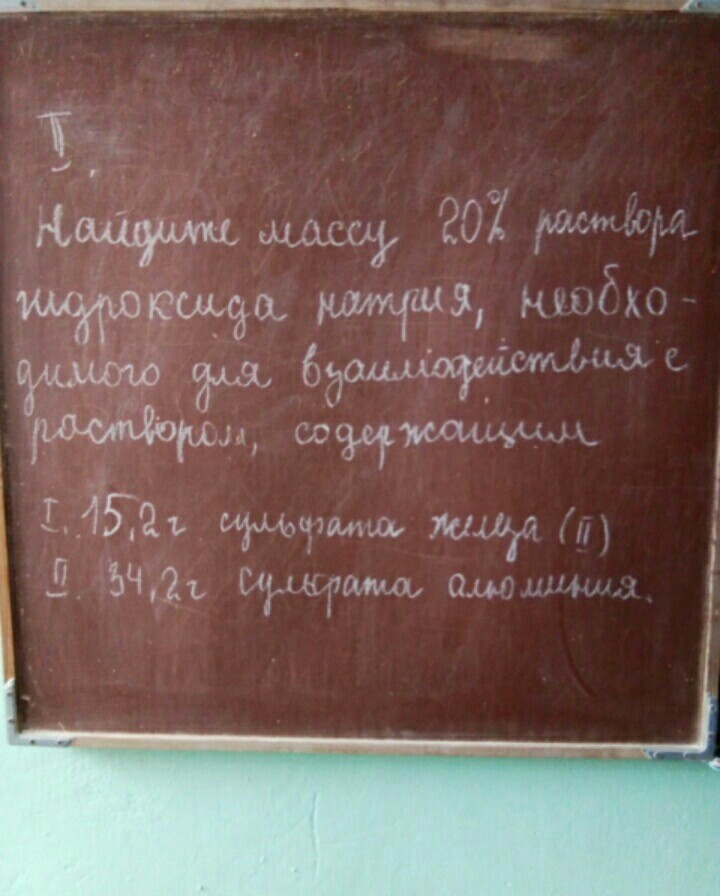 II.
Найдите массу 20% раствора
гидроксида натрия, необхо-
димого для взаимодействия с
раствором, содержащим
I. 15,2г сульфата железа (II)
II. 34,2г сульфата алюминия.